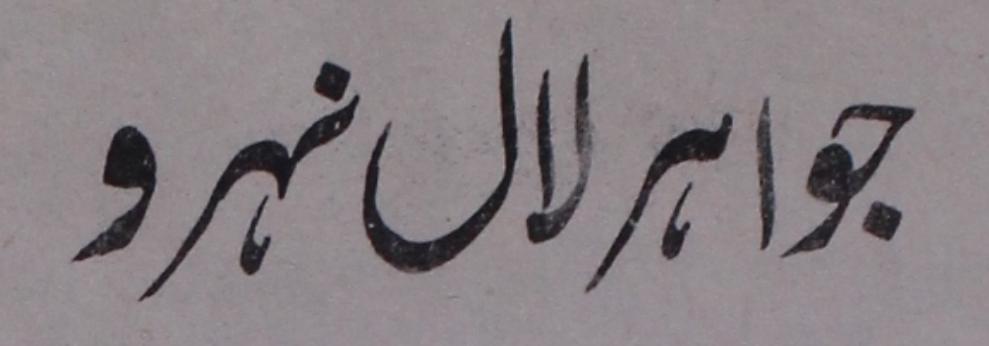 جواہر لال نہرو